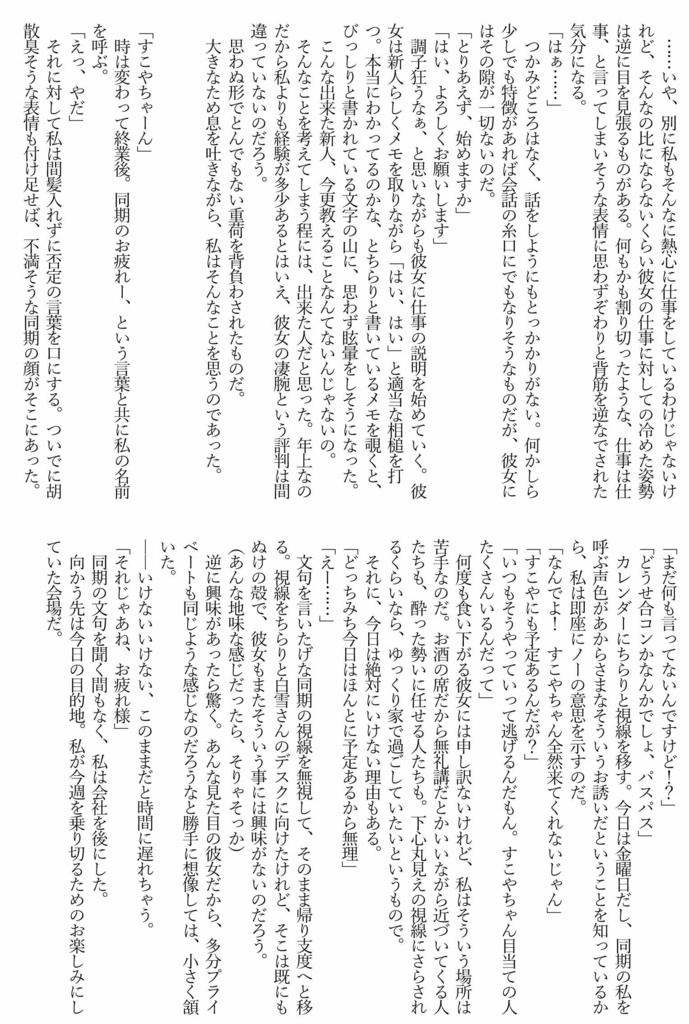 ……いや、別に私もそんなに熱心に仕事をしているわけじゃないけ
れど、そんなの比にならないくらい彼女の仕事に対しての冷めた姿勢
は逆に目を見張るものがある。何もかも割り切ったような、仕事は仕
事、と言ってしまいそうな表情に思わずぞわりと背筋を逆なでされた
気分になる。
「はぁ……」
つかみどころはなく、話をしようにもとっかかりがない。何かしら
少しでも特徴があれば会話の糸口にでもなりそうなものだが、彼女に
はその隙が一切ないのだ。
「とりあえず、始めますか」
「はい、よろしくお願いします」
調子狂うなぁ、と思いながらも彼女に仕事の説明を始めていく。彼
女は新人らしくメモを取りながら「はい、はい」と適当な相槌を打
つ。本当にわかってるのかな、とちらりと書いているメモを覗くと、
びっしりと書かれている文字の山に、思わず眩暈をしそうになった。
こんな出来た新人、今更教えることなんてないんじゃないの。
そんなことを考えてしまう程には、出来た人だと思った。年上なの
だから私よりも経験が多少あるとはいえ、彼女の凄腕という評判は間
違っていないのだろう。
思わぬ形でとんでもない重荷を背負わされたものだ。
大きなため息を吐きながら、私はそんなことを思うのであった。
「すこやちゃーん」
時は変わって終業後。同期のお疲れー、という言葉と共に私の名前
を呼ぶ。
「えっ、やだ」
それに対して私は間髪入れずに否定の言葉を口にする。ついでに胡
散臭そうな表情も付け足せば、不満そうな同期の顔がそこにあった。
「まだ何も言ってないんですけど！？」
「どうせ合コンかなんかでしょ、パスパス」
カレンダーにちらりと視線を移す。今日は金曜日だし、同期の私を
呼ぶ声色があからさまなそういうお誘いだということを知っているか
ら、私は即座にノーの意思を示すのだ。
「なんでよ！　すこやちゃん全然来てくれないじゃん」
「すこやにも予定あるんだが？」
「いつもそうやっていって逃げるんだもん。すこやちゃん目当ての人
たくさんいるんだって」
何度も食い下がる彼女には申し訳ないけれど、私はそういう場所は
苦手なのだ。お酒の席だから無礼講だとかいいながら近づいてくる人
たちも、酔った勢いに任せる人たちも。下心丸見えの視線にさらされ
るくらいなら、ゆっくり家で過ごしていたいというもので。
それに、今日は絶対にいけない理由もある。
「どっちみち今日はほんとに予定あるから無理」
「えー……」
文句を言いたげな同期の視線を無視して、そのまま帰り支度へと移
る。視線をちらりと白雪さんのデスクに向けたけれど、そこは既にも
ぬけの殻で、彼女もまたそういう事には興味がないのだろう。
(あんな地味な感じだったら、そりゃそっか)
逆に興味があったら驚く。あんな見た目の彼女だから、多分プライ
ベートも同じような感じなのだろうなと勝手に想像しては、小さく頷
いた。
――いけないいけない、このままだと時間に遅れちゃう。
「それじゃあね、お疲れ様」
同期の文句を聞く間もなく、私は会社を後にした。
向かう先は今日の目的地。私が今週を乗り切るためのお楽しみにし
ていた会場だ。